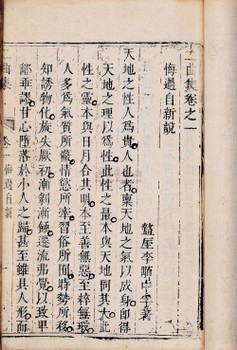 二曲集卷之一
悔過自新說
盩厔李顒中孚著
天地之性人爲貴人也者稟天地之氣以成身即得
天地之理以爲性此性之量本與天地同其大此
性之靈本與日月合其明本至善無惡至粹無瑕
人多爲氣質所蔽情慾所牽習俗所囿時勢所移
知誘物化旋失厥初漸剝漸蝕遷流弗覺以致卑
鄙乖謬甘心墮落於小人之歸甚至雖具人形而
曲集
卷一 悔過自新